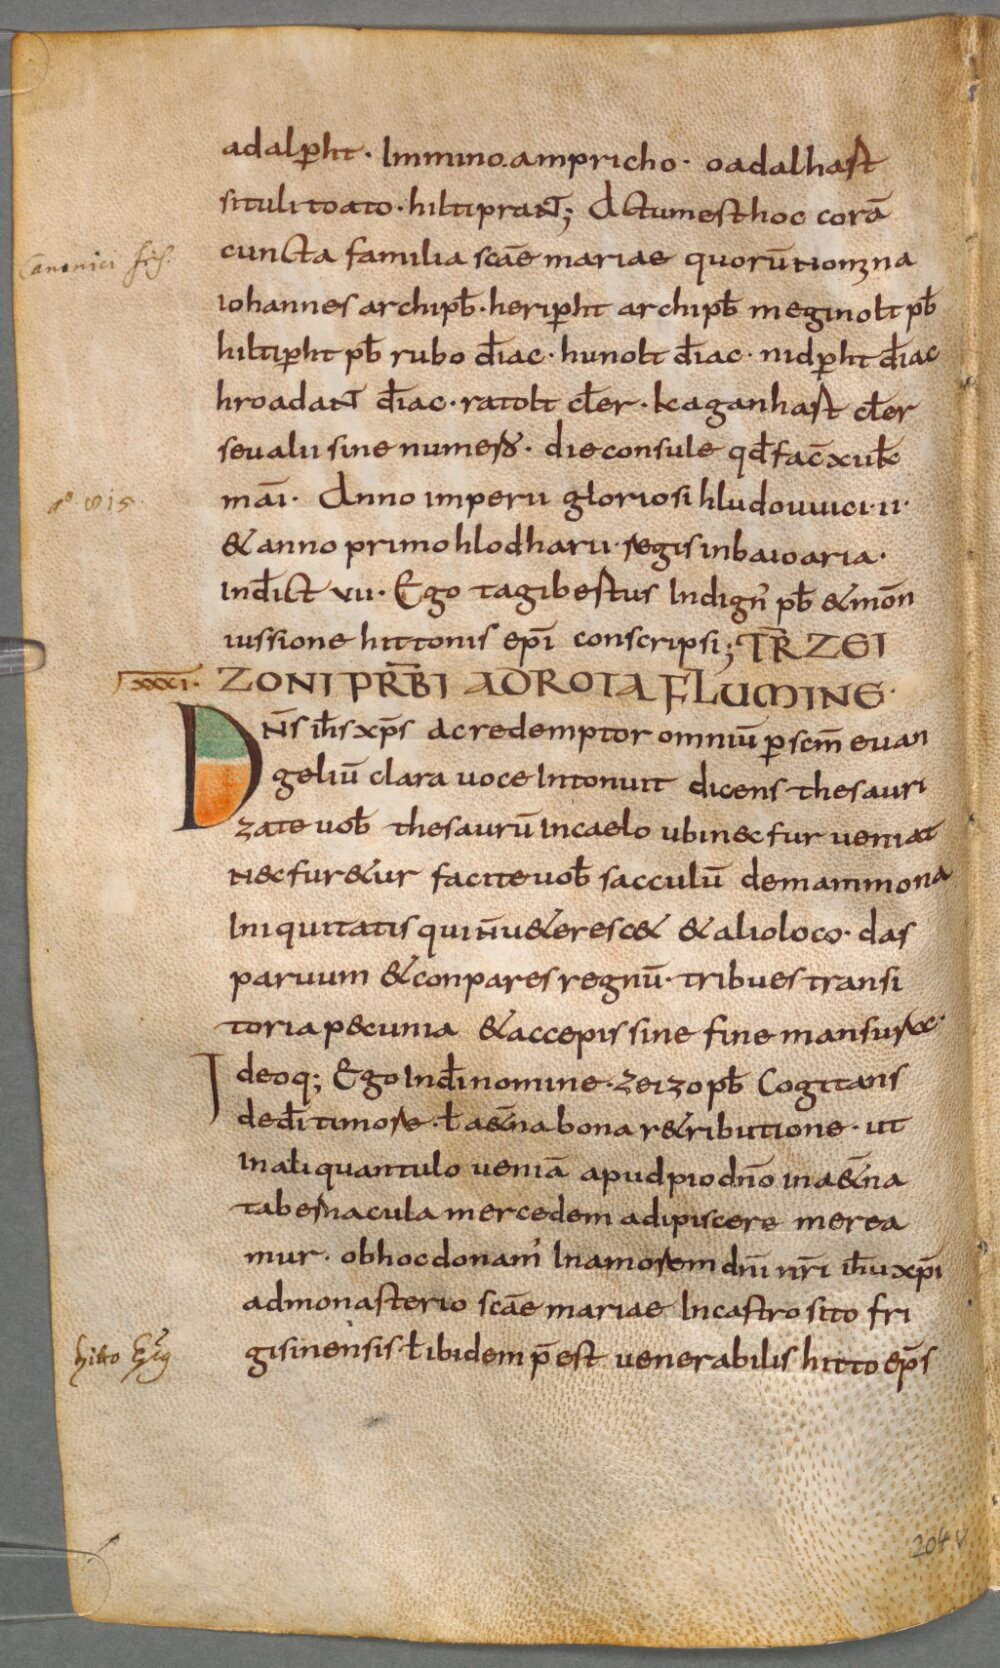 adalꝑht · Immino · ampricho · oadalhast
situli toato · hiltipraNT; Actum est hoc corā
Canonici fris.
cuncta familia scāe mariae quorū nomina
iohannes archipƀ · heriꝑht archipƀ meginolt pƀ
hiltiꝑht pƀ rubo điac · hunolt điac · nidꝑht điac
hroadaNT điac · ratolt cler · kaganhast cler
seu alii sine numero · die consule qđ fac̄ xu kł
aº 815
mai · Anno imperii gloriosi hludouuici · ii ·
& anno primo hlodharii · regis in baioaria ·
Inđict uii · Ego tagibertus Indign' pƀ & mon̄
iussione hittonis ep̄i conscripsi; TR̄ ZEI
xxxi · ZONI PRB̄I AD ROTA FLUMINE ·
DN̄s ih̄s xp̄s ac redemptor omniū ꝑ scm̄ euan
geliū clara uoce Intonuit dicens thesauri
zate uoƀ thesaurū In caelo ubi nec fur ueniat
nec furetur facite uoƀ sacculū de mammona
Iniquitatis qui n̄ u&eresc& & alio loco · das
paruum & conpares regnū · tribues transi
toria pecunia & accepis sine fine mansuroc ·
Ideoq; Ego In đi nomine · zeizo pƀ Cogitans
de đi timore · ł a&n̄a bona r&ributione · ut
In aliquantulo ueniā apud pio dn̄o in a&n̄a
tabernacula mercedem adipiscere merea
mur · ob hoc donam' In amorem dn̄i nr̄i ih̄u xp̄i
ad monasterio scāe mariae In castro sito fri
hitto Ep̄s
gisinensis ł ibidem p̄est uenerabilis hitto ep̄s
204 v